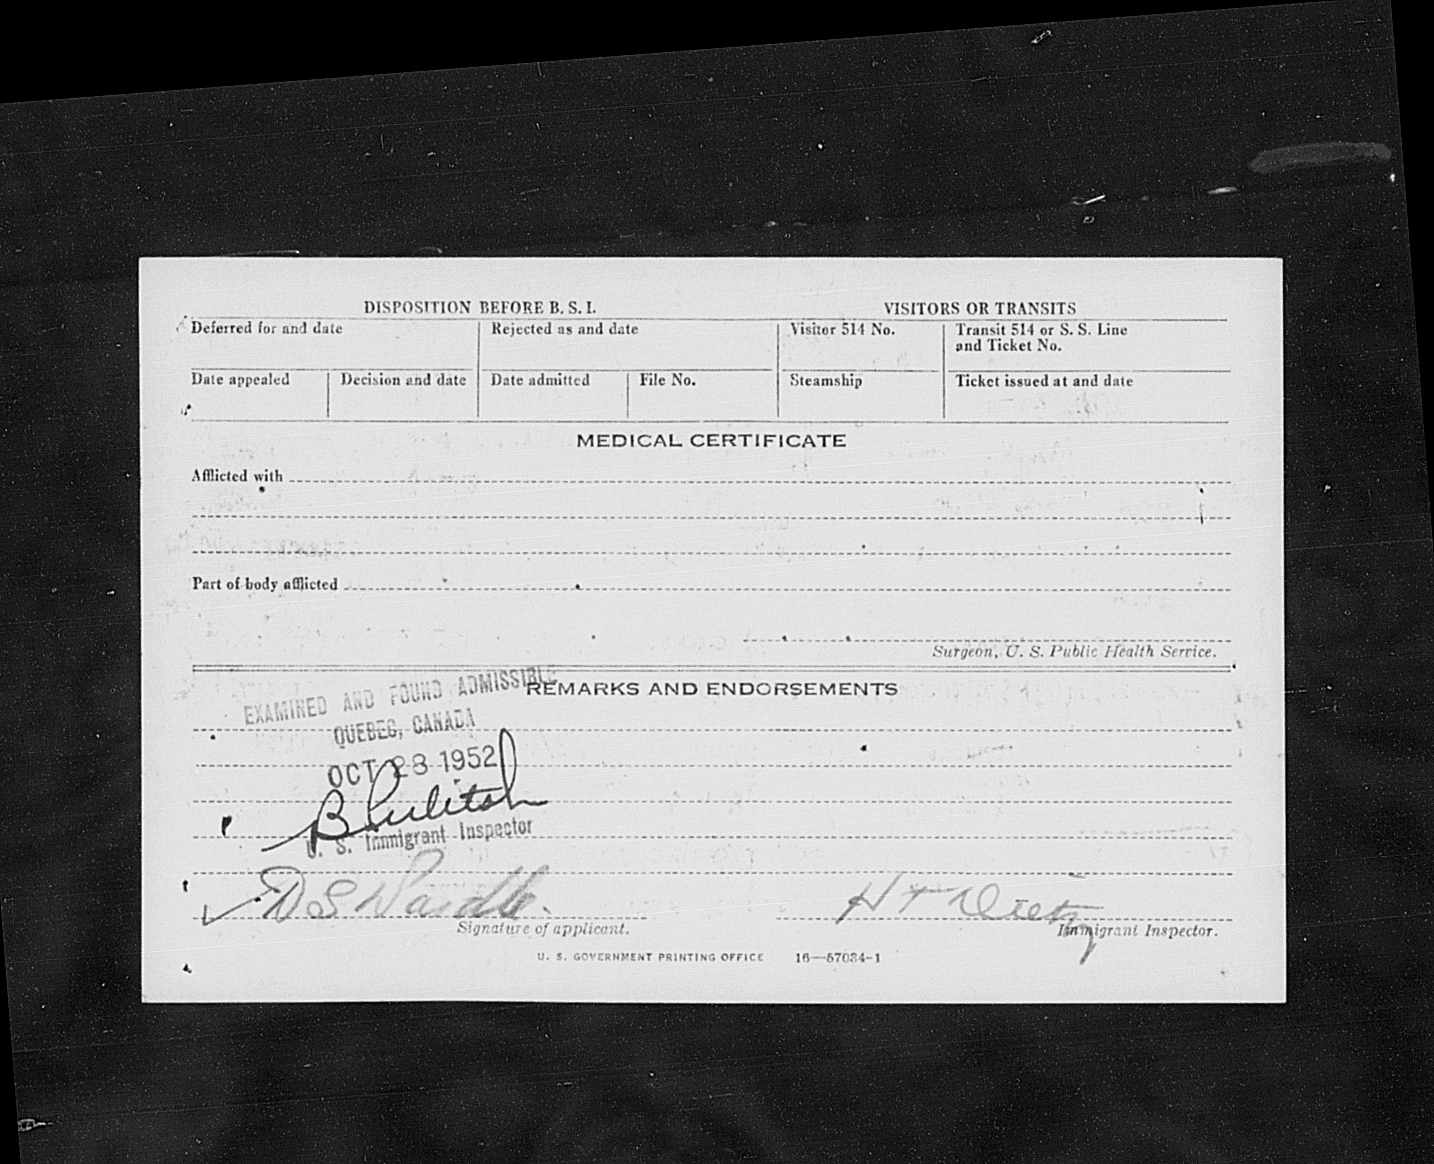 DISPOSITION BEFORE B. S. I. VISITORS OR TRANSITS
Deferred for and date Rejected as and date Visitor 514 No. Transit 514 or S. S. Line
and Ticket No.
Date appealed Decision and date Date admitted File No. Steamship Ticket issued at and date
MEDICAL CERTIFICATE
Afflicted with
Part of body afflicted
Surgeon, U. S. Public Health Service.
EXAMINED AND FOUND ADMISSIBLE
REMARKS AND ENDORSEMENTS
QUEBEC, CANADA
OCT 28 1952
B
U. S. Immigrant Inspector
D S H T Dietz
Signature of applicant. Immigrant Inspector.
U. S. GOVERNMENT PRINTING OFFICE 16—57034-1